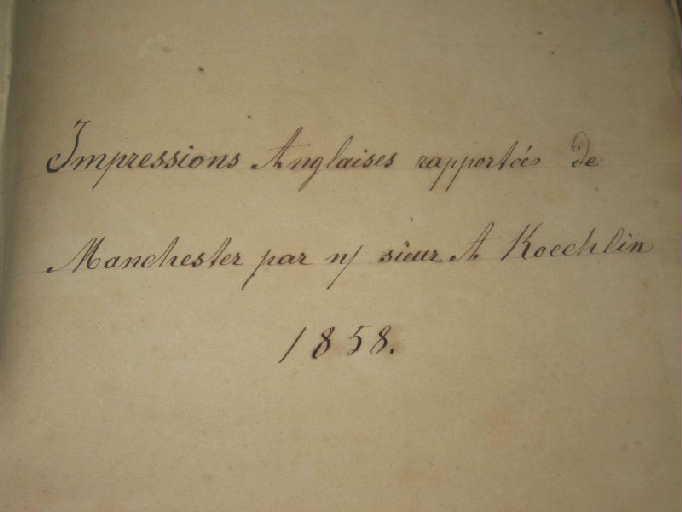 Impressions Anglaises rapportées de
Manchester par n/ sieur A Koechlin
1858.